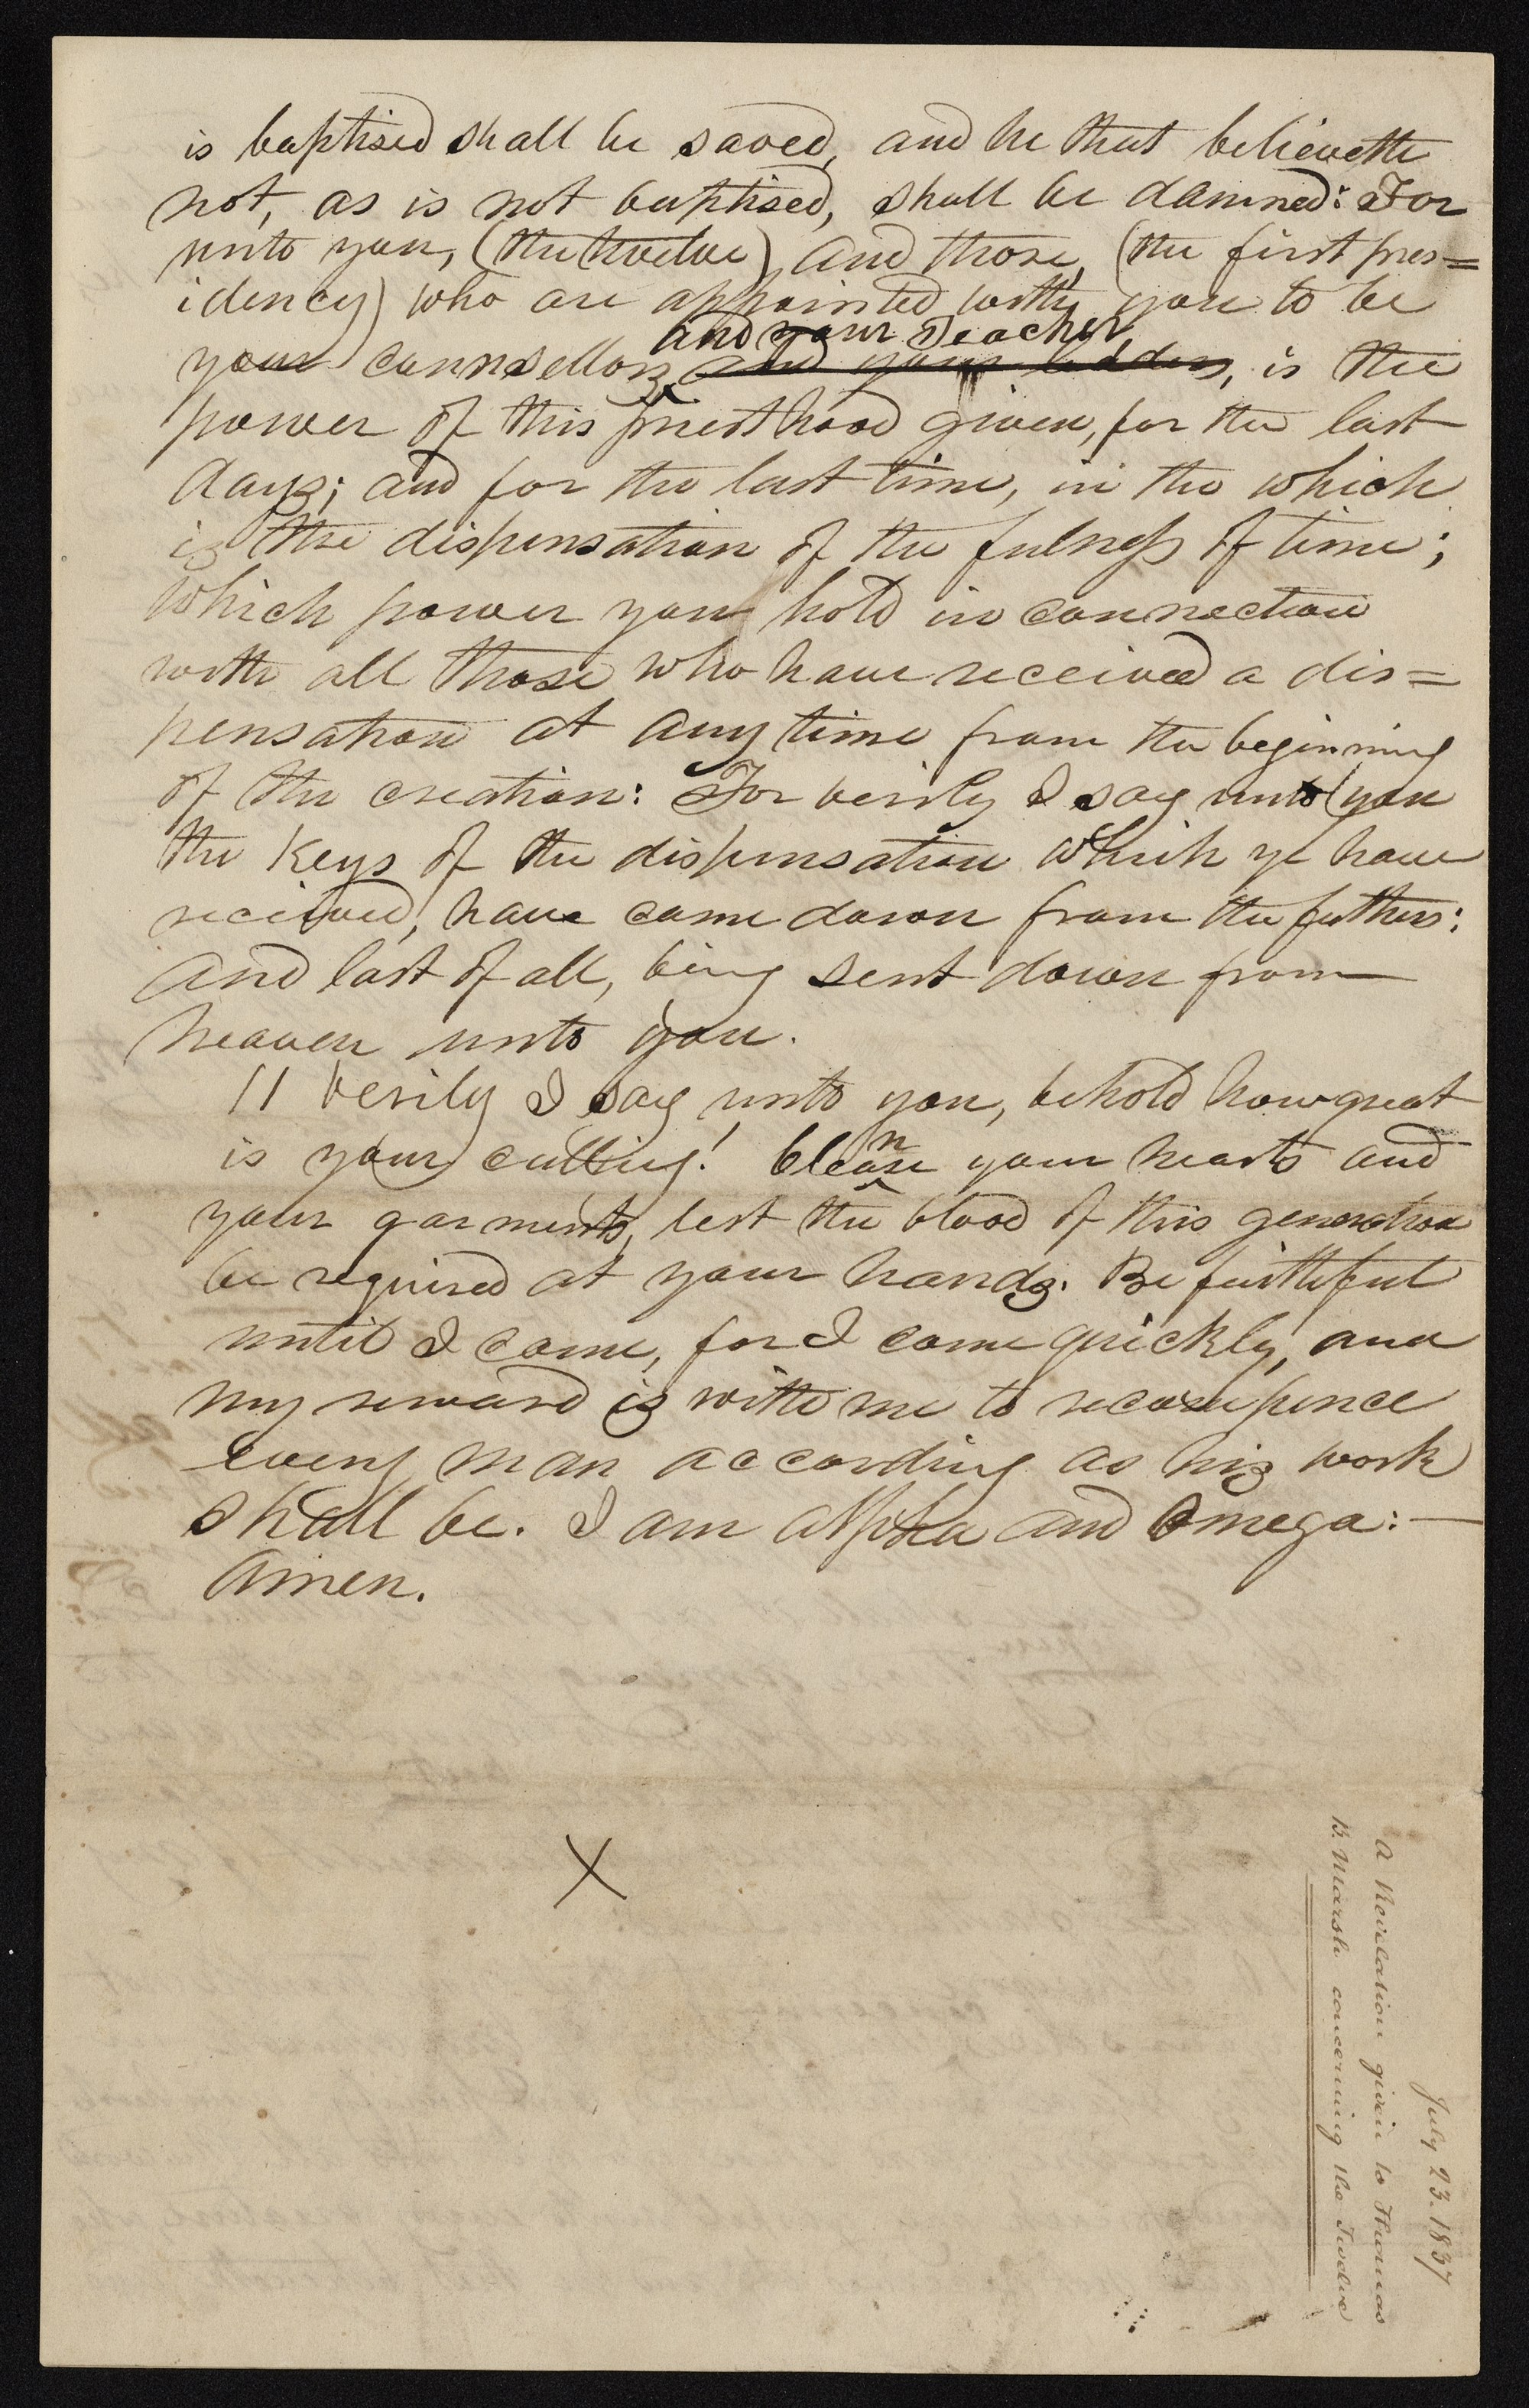 is baptised shall be saved, and he that believeth
not, as is not baptised, shall be damned: For
unto you, (the twelve) and those, (the first pres=
idency) who are appointed with you to be
and your Teacher,
your counsellors, and your leaders, is the
power of this priesthood given, for the last
days; and for the last time, in the which
is the dispensation of the fulness of time;
which power you hold in connection
with all those who have received a dis=
pensation at any time from the beginning
of the creation: For verily I say unto you
the Keys of the dispensation which ye have
received, have came down from the fathers:
and last of all, being sent down from
heaven unto you.
11 Verily I say unto you, behold how great
n
is your calling! Clease your hearts and
your garments, lest the blood of this generation
be required at your hands. Be faithful
until I come, for I come quickly, and
my reward is with me to recompence
every man according as his work
shall be. I am Alpha and Omega:—
Amen.
X
July 23. 1837
A Revelation given to Thomas
B. Marsh concerning the Twelve